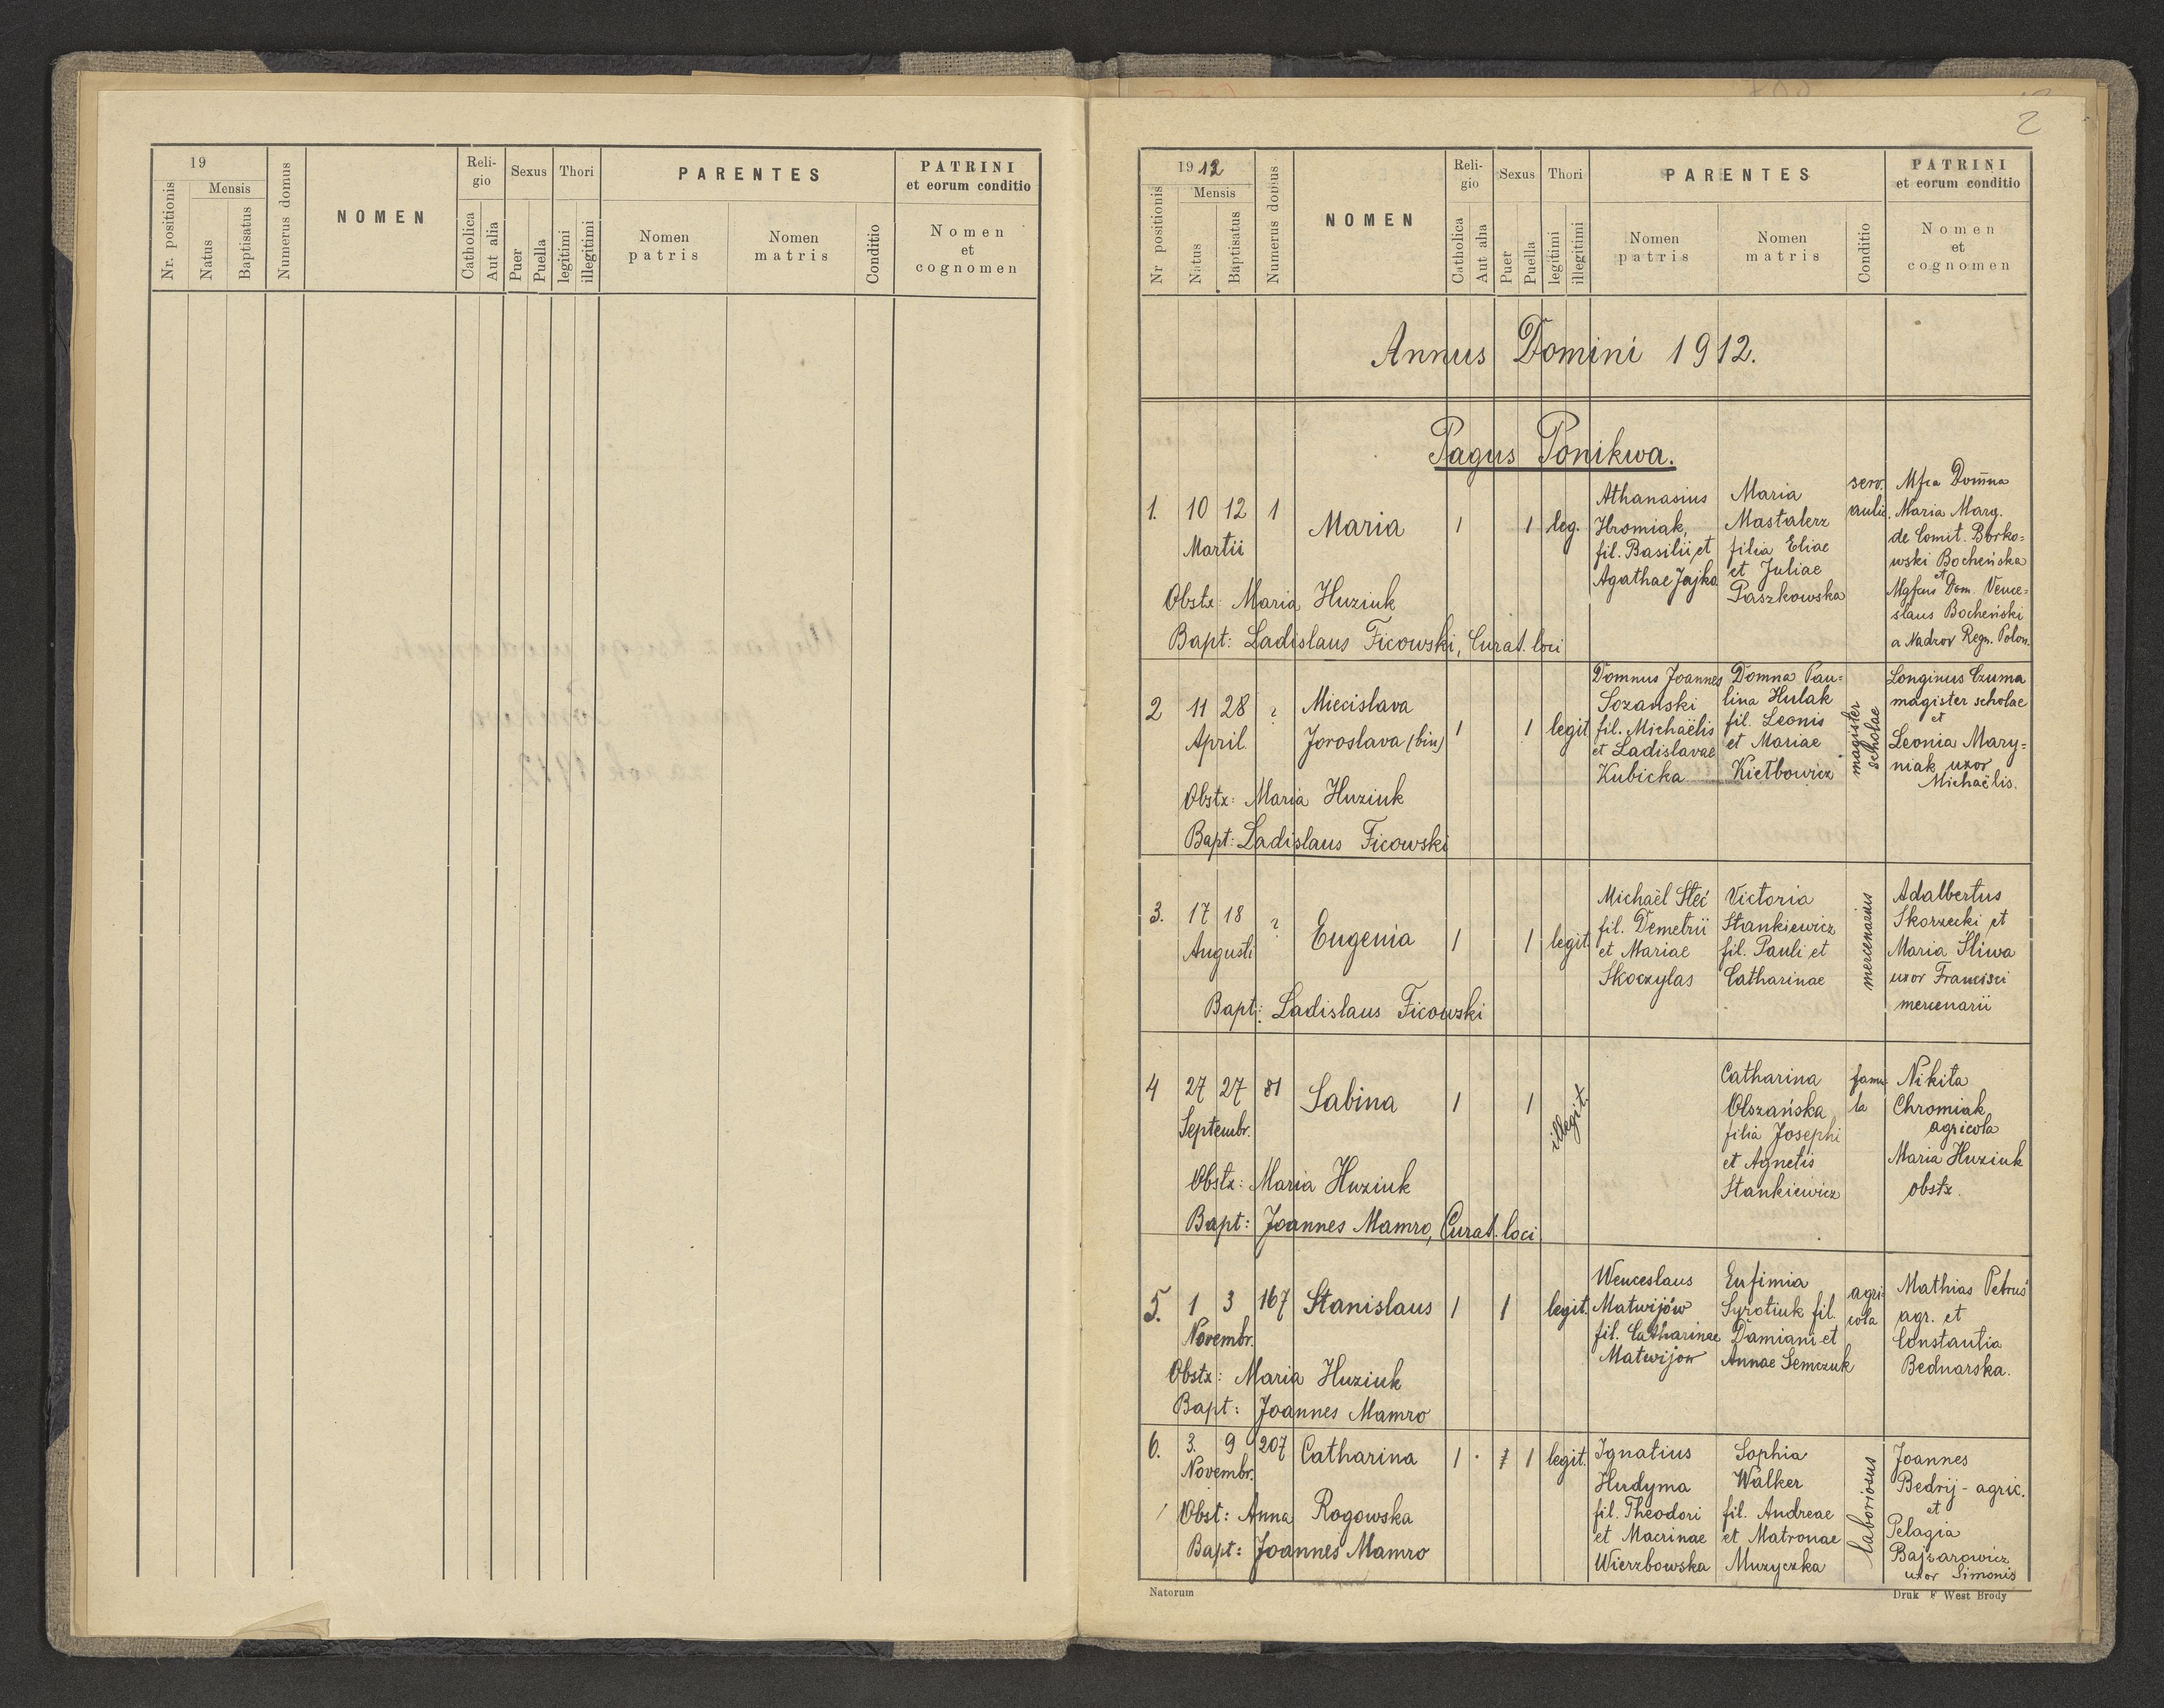 19
Mensis
Nr. positionis
Natus
Baptisatus
Numerus domus
NOMEN
Religio
Catholica
Aut alia
Sexus
Puer
Puella
Thori
legitimi
illegitimi
PARENTES
Nomen
patris
Nomen
matris
Conditio
PATRINI
et eorum conditio
Nomen
et
cognomen
2
1912
Mensis
Nr positionis
Natus
Baptisatus
Numerus domus
NOMEN
Reli-
gio
Catholica
Aut alia
Sexus
Puer
Puella
Thori
legitimi
illegitimi
PARENTES
Nomen
patris
Nomen
matris
Conditio
PATRINI
et eorum conditio
Nomen
et
cognomen
Annus Domini 1912.
Pagus Ponikwa.
1. 10 12 1 Maria 1 1 leg.
Martii
Athanasius
Hromiak,
fil. Basilii et
Agathae Jajko
Maria
Mastalerz
filia Eliae
et Juliae
Paszkowska
serv.
aulic.
Mfca Domna
Maria Marg.
de Comit. Borko=
wski Bocheńska
et
Mgfcus Dom. Vence=
slaus Bocheński
a Nadrov Regn. Polon.
Obstx: Maria Huziuk
Bapt: Ladislaus Ficowski, Curat. loci
2 11 28 ? Miecislava
April. Jaroslava (bin) 1 1 legit
Domnus Joannes
Sozański
fil. Michaëlis
et Ladislavae
Kubicka
Domna Pau=
lina Hulak
fil. Leonis
et Mariae
Kiełbowicz
magister
scholae
Longinus Czuma
magister scholae
et
Leonia Mary=
niak uxor
Michaëlis.
Obstx: Maria Huziuk
Bapt: Ladislaus Ficowski
3. 17 18 ? Eugenia 1 1 legit.
Augusti
Michaël Steć
fil. Demetrii
et Mariae
Skoczylas
Victoria
Stankiewicz
fil. Pauli et
Catharinae
mercenarius
Adalbertus
Skorzecki et
Maria Śliwa
uxor Francisci
mercenarii
Bapt: Ladislaus Ficowski
4 27 27 81 Sabina 1 1 illegit.
Septembr.
Catharina
Olszańska
filia Josephi
et Agnetis
Stankiewicz
famu-
la
Nikita
Chromiak
agricola
Maria Huziuk
obstx.
Obstx: Maria Huziuk
Bapt: Joannes Mamro, Curat. loci
5. 1 3 167 Stanislaus 1 1 legit.
Novembr.
Wenceslaus
Matwijów
fil. Catharinae
Matwijow
Eufimia
Syrotiuk fil.
Damiani et
Annae Semczuk
agri-
cola
Mathias Petruś
agr. et
Constantia
Bednarska.
Obstx: Maria Huziuk
Bapt: Joannes Mamro
6. 3. 9 207 Catharina 1 1 legit.
Novembr.
Ignatius
Hudyma
fil. Theodori
et Macrinae
Wierzbowska
Sophia
Walker
fil. Andreae
et Matronae
Muzyczka
laboriosus
Joannes
Bedrij - agric.
et
Pelagia
Bajsarowicz
uxor Simonis
Obst: Anna Rogowska
Bapt: Joannes Mamro
Natorum
Druk F West Brody